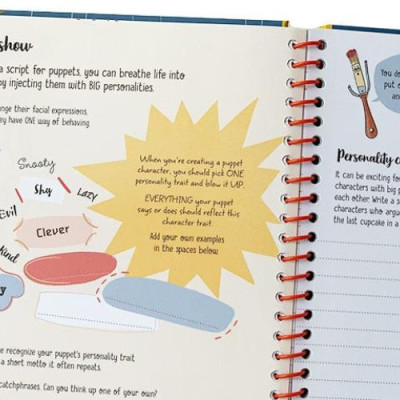 show
a script for puppets, you can breathe life into
by injecting them with BIG personalities.
nge their facial expressions,
ey have ONE way of behaving
Snooty
Shy
Lazy
Evil
Clever
Kind
When you're creating a puppet
character, you should pick ONE
personality trait and blow it UP.
EVERYTHING your puppet
says or does should reflect this
character trait.
Add your own examples
in the spaces below.
e recognize your puppet's personality trait
a short motto it often repeats.
catchphrases. Can you think up one of your own?
You de
put o
an
Personality c
It can be exciting for
characters with big p
each other. Write a s
characters who argu
the last cupcake in a